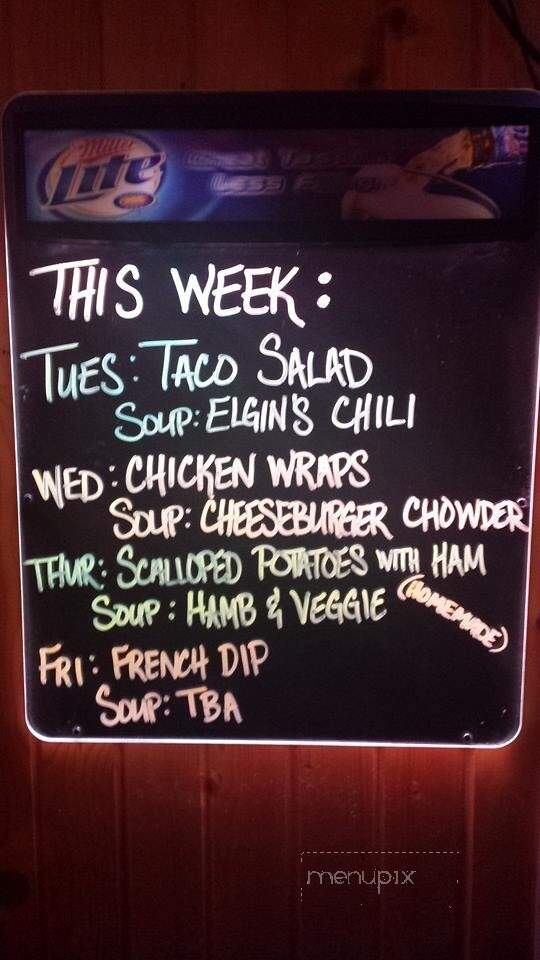 Miller
Lite
Great Taste
Less
THIS WEEK:
TUES: TACO SALAD
SOUP: ELGIN'S CHILI
WED: CHICKEN WRAPS
SOUP: CHEESEBURGER CHOWDER
THUR: SCALLOPED POTATOES WITH HAM
SOUP: HAMB & VEGGIE (HOMEMADE)
FRI: FRENCH DIP
SOUP: TBA
menupix